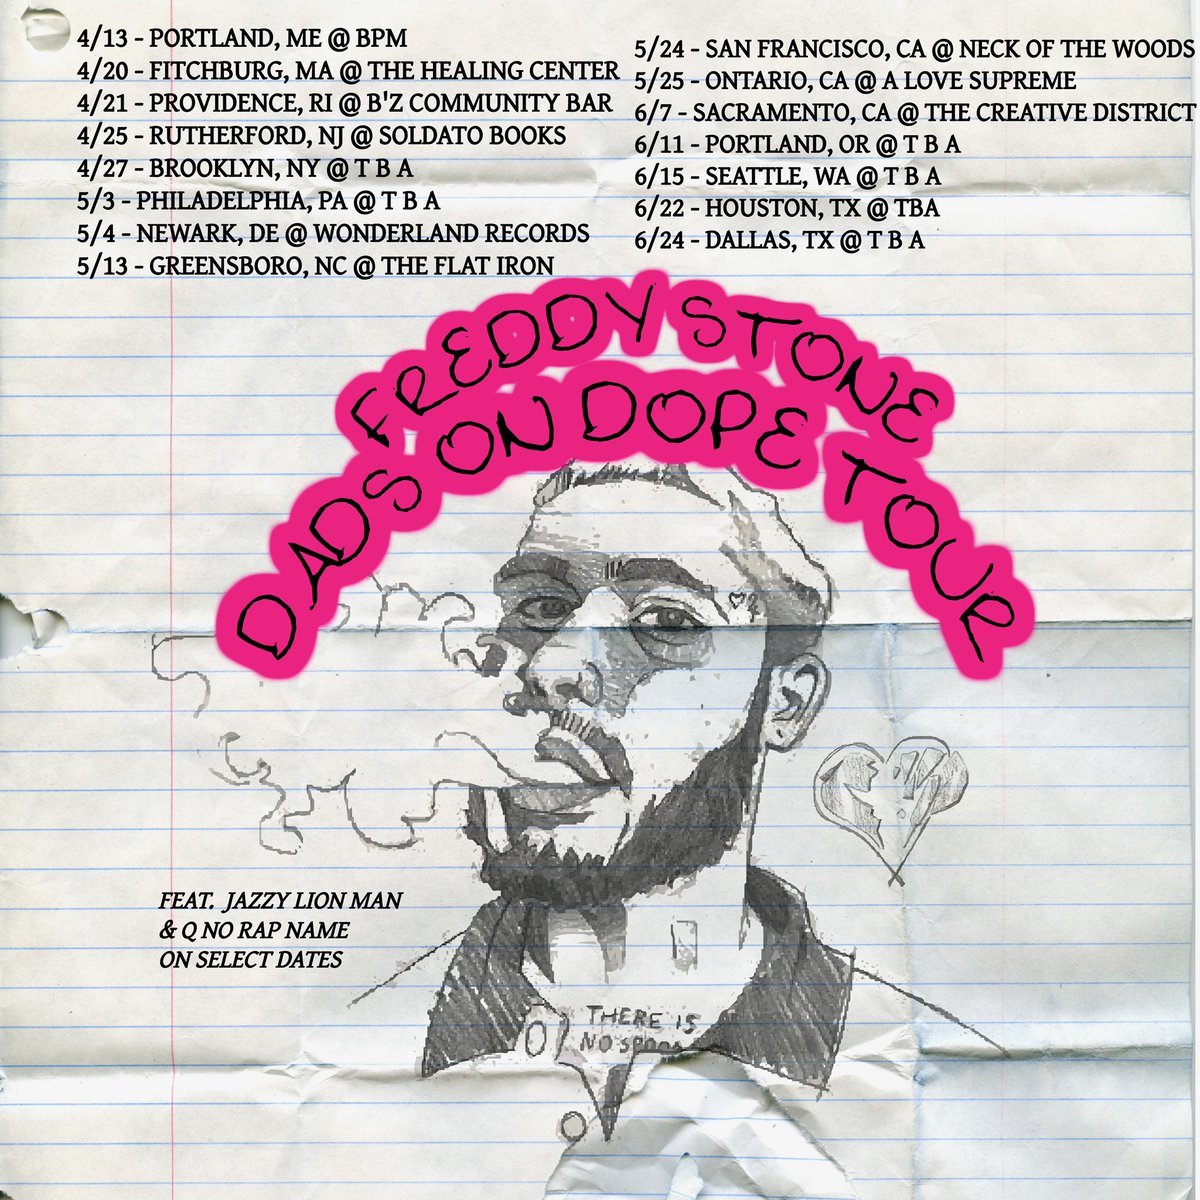 4/13 - PORTLAND, ME @ BPM
4/20 - FITCHBURG, MA @ THE HEALING CENTER
4/21 - PROVIDENCE, RI @ B'Z COMMUNITY BAR
4/25 - RUTHERFORD, NJ @ SOLDATO BOOKS
4/27 - BROOKLYN, NY @ T B A
5/3 - PHILADELPHIA, PA @ T B A
5/4 - NEWARK, DE @ WONDERLAND RECORDS
5/13 - GREENSBORO, NC @ THE FLAT IRON
5/24 - SAN FRANCISCO, CA @ NECK OF THE WOODS
5/25 - ONTARIO, CA @ A LOVE SUPREME
6/7 - SACRAMENTO, CA @ THE CREATIVE DISTRICT
6/11 - PORTLAND, OR @ T B A
6/15 - SEATTLE, WA @ T B A
6/22 - HOUSTON, TX @ TBA
6/24 - DALLAS, TX @ T B A
FREDDY STONE
DADS ON DOPE TOUR
FEAT. JAZZY LION MAN
& Q NO RAP NAME
ON SELECT DATES
THERE IS
NO